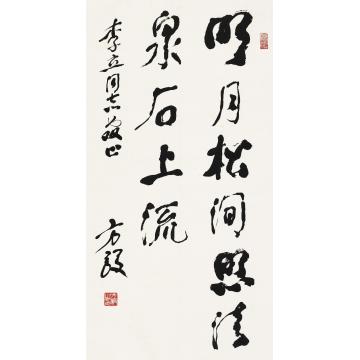 明月松间照清
泉石上流
李立同志教正
方毅